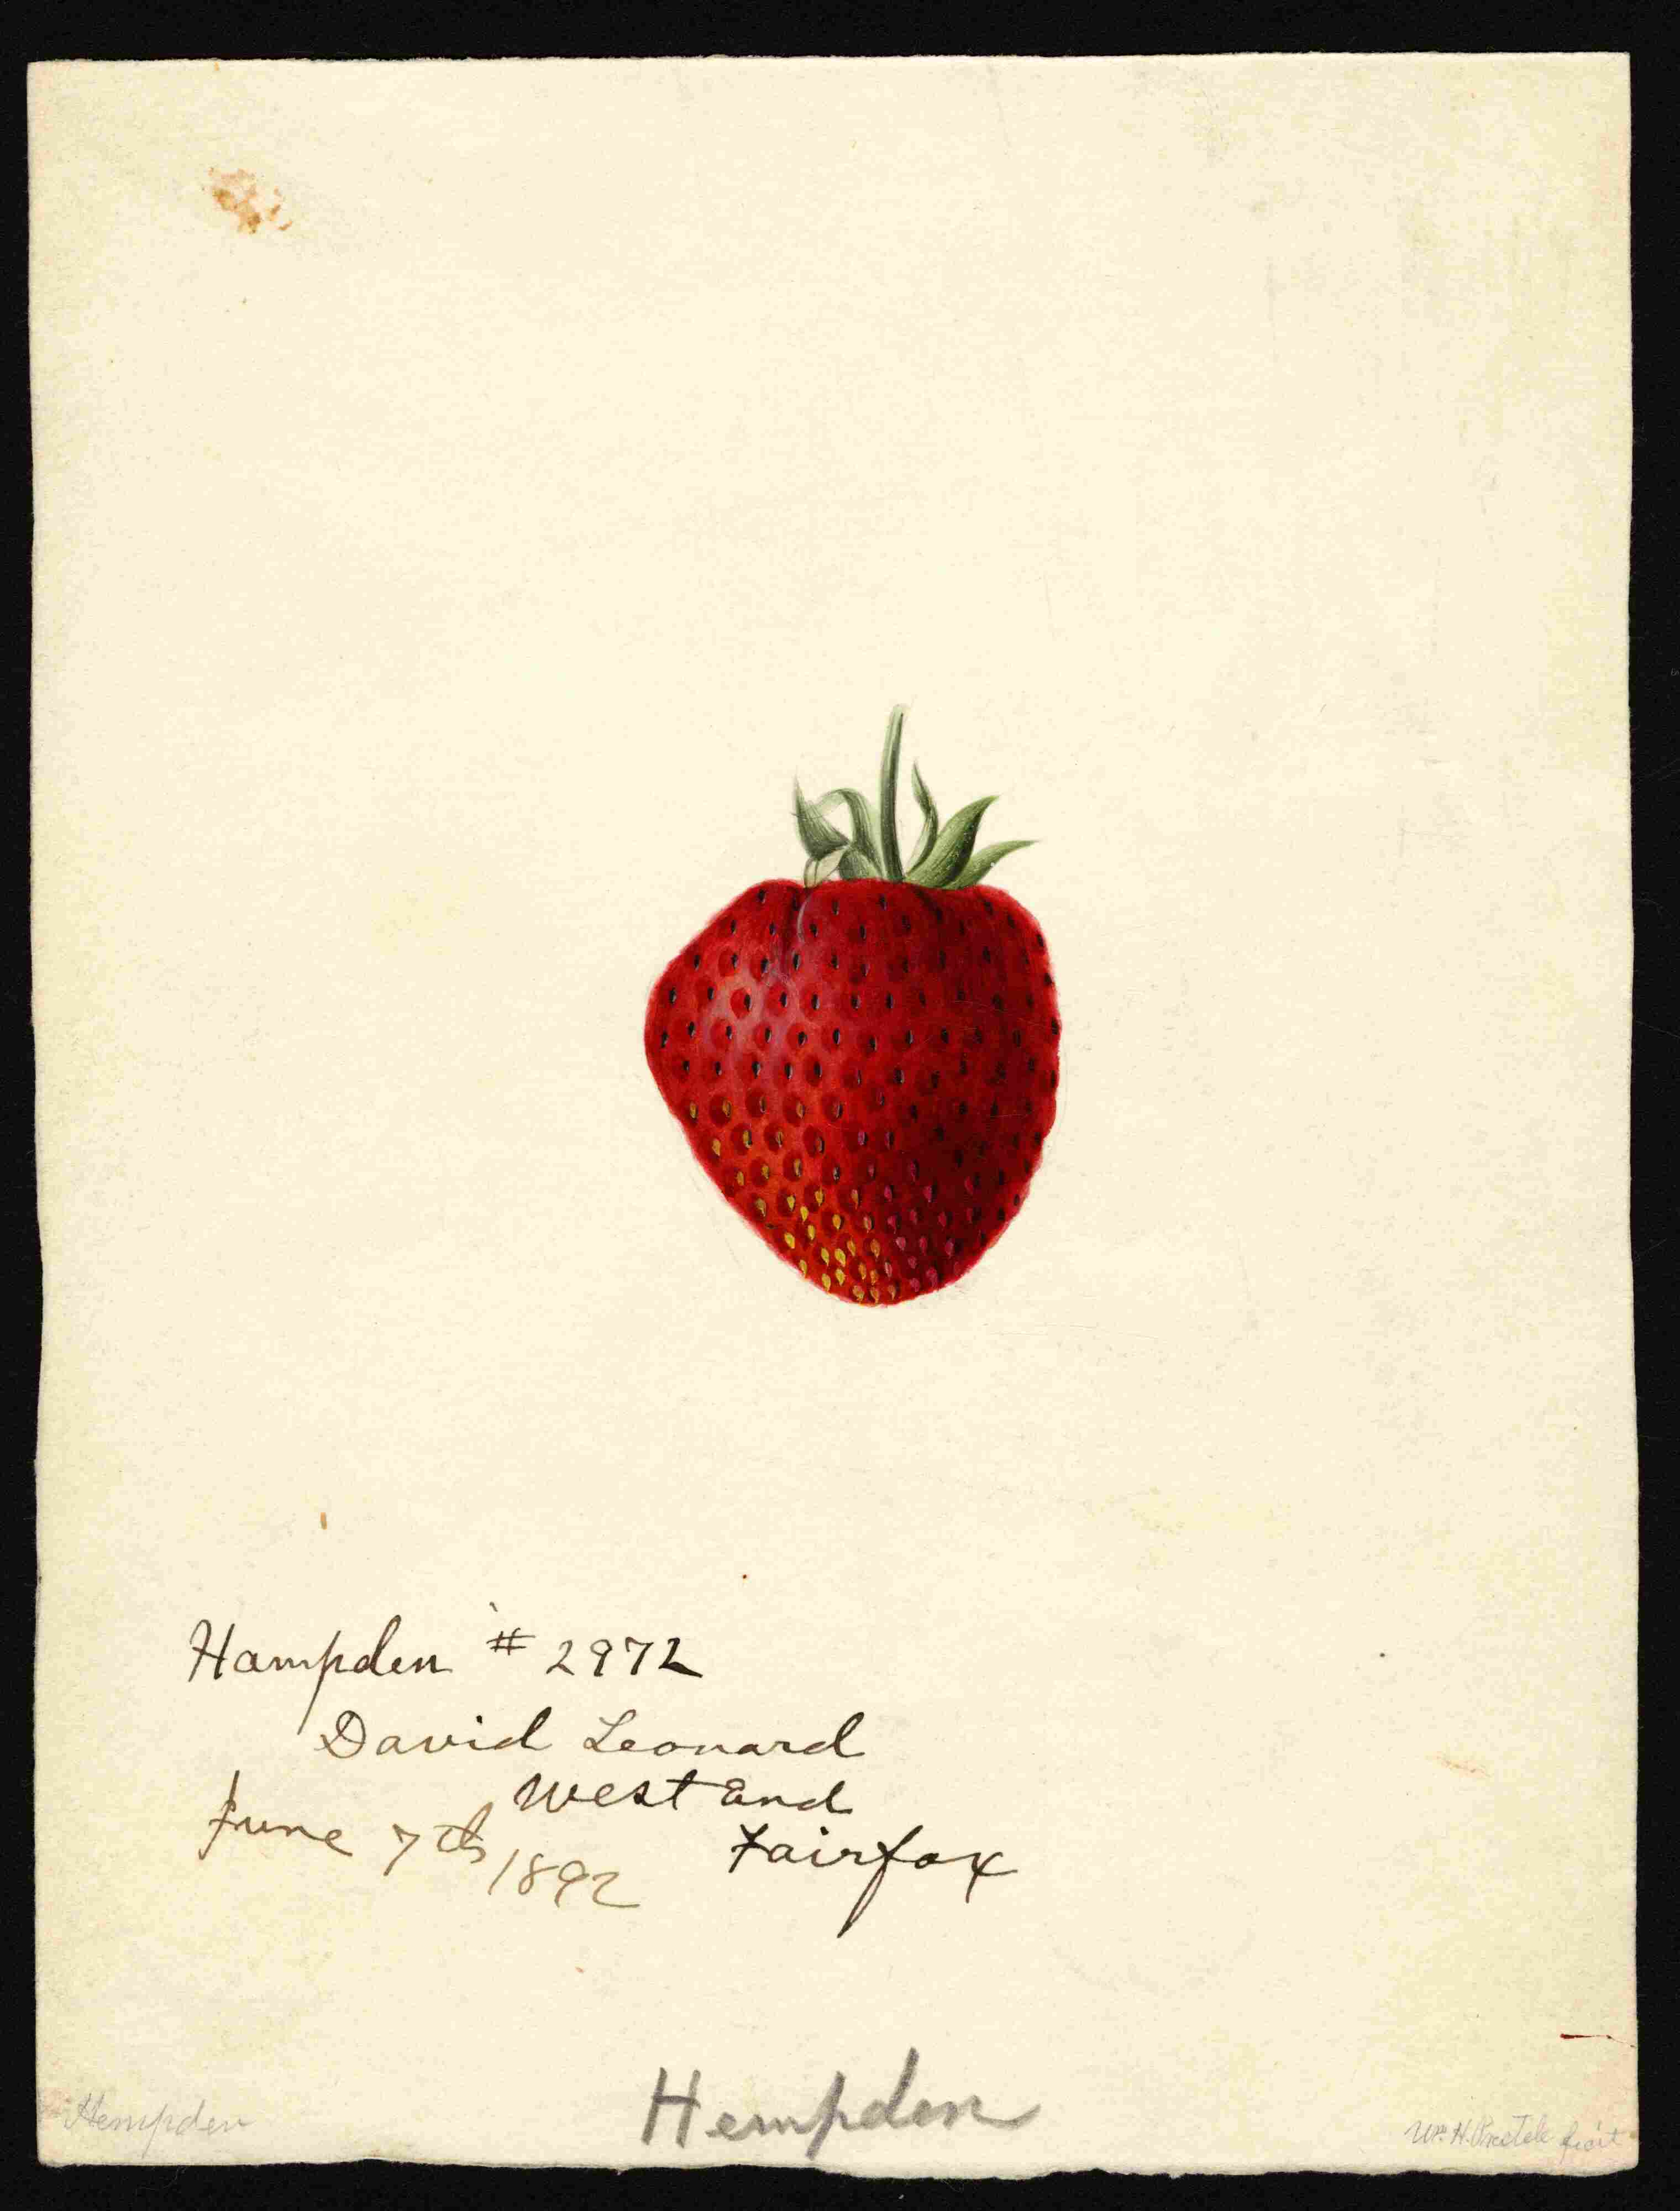 Hampden # 2972
David Leonard
West End
Fairfax
June 7th 1892
Hempden
Hempden
Wm. H. Prestele fecit